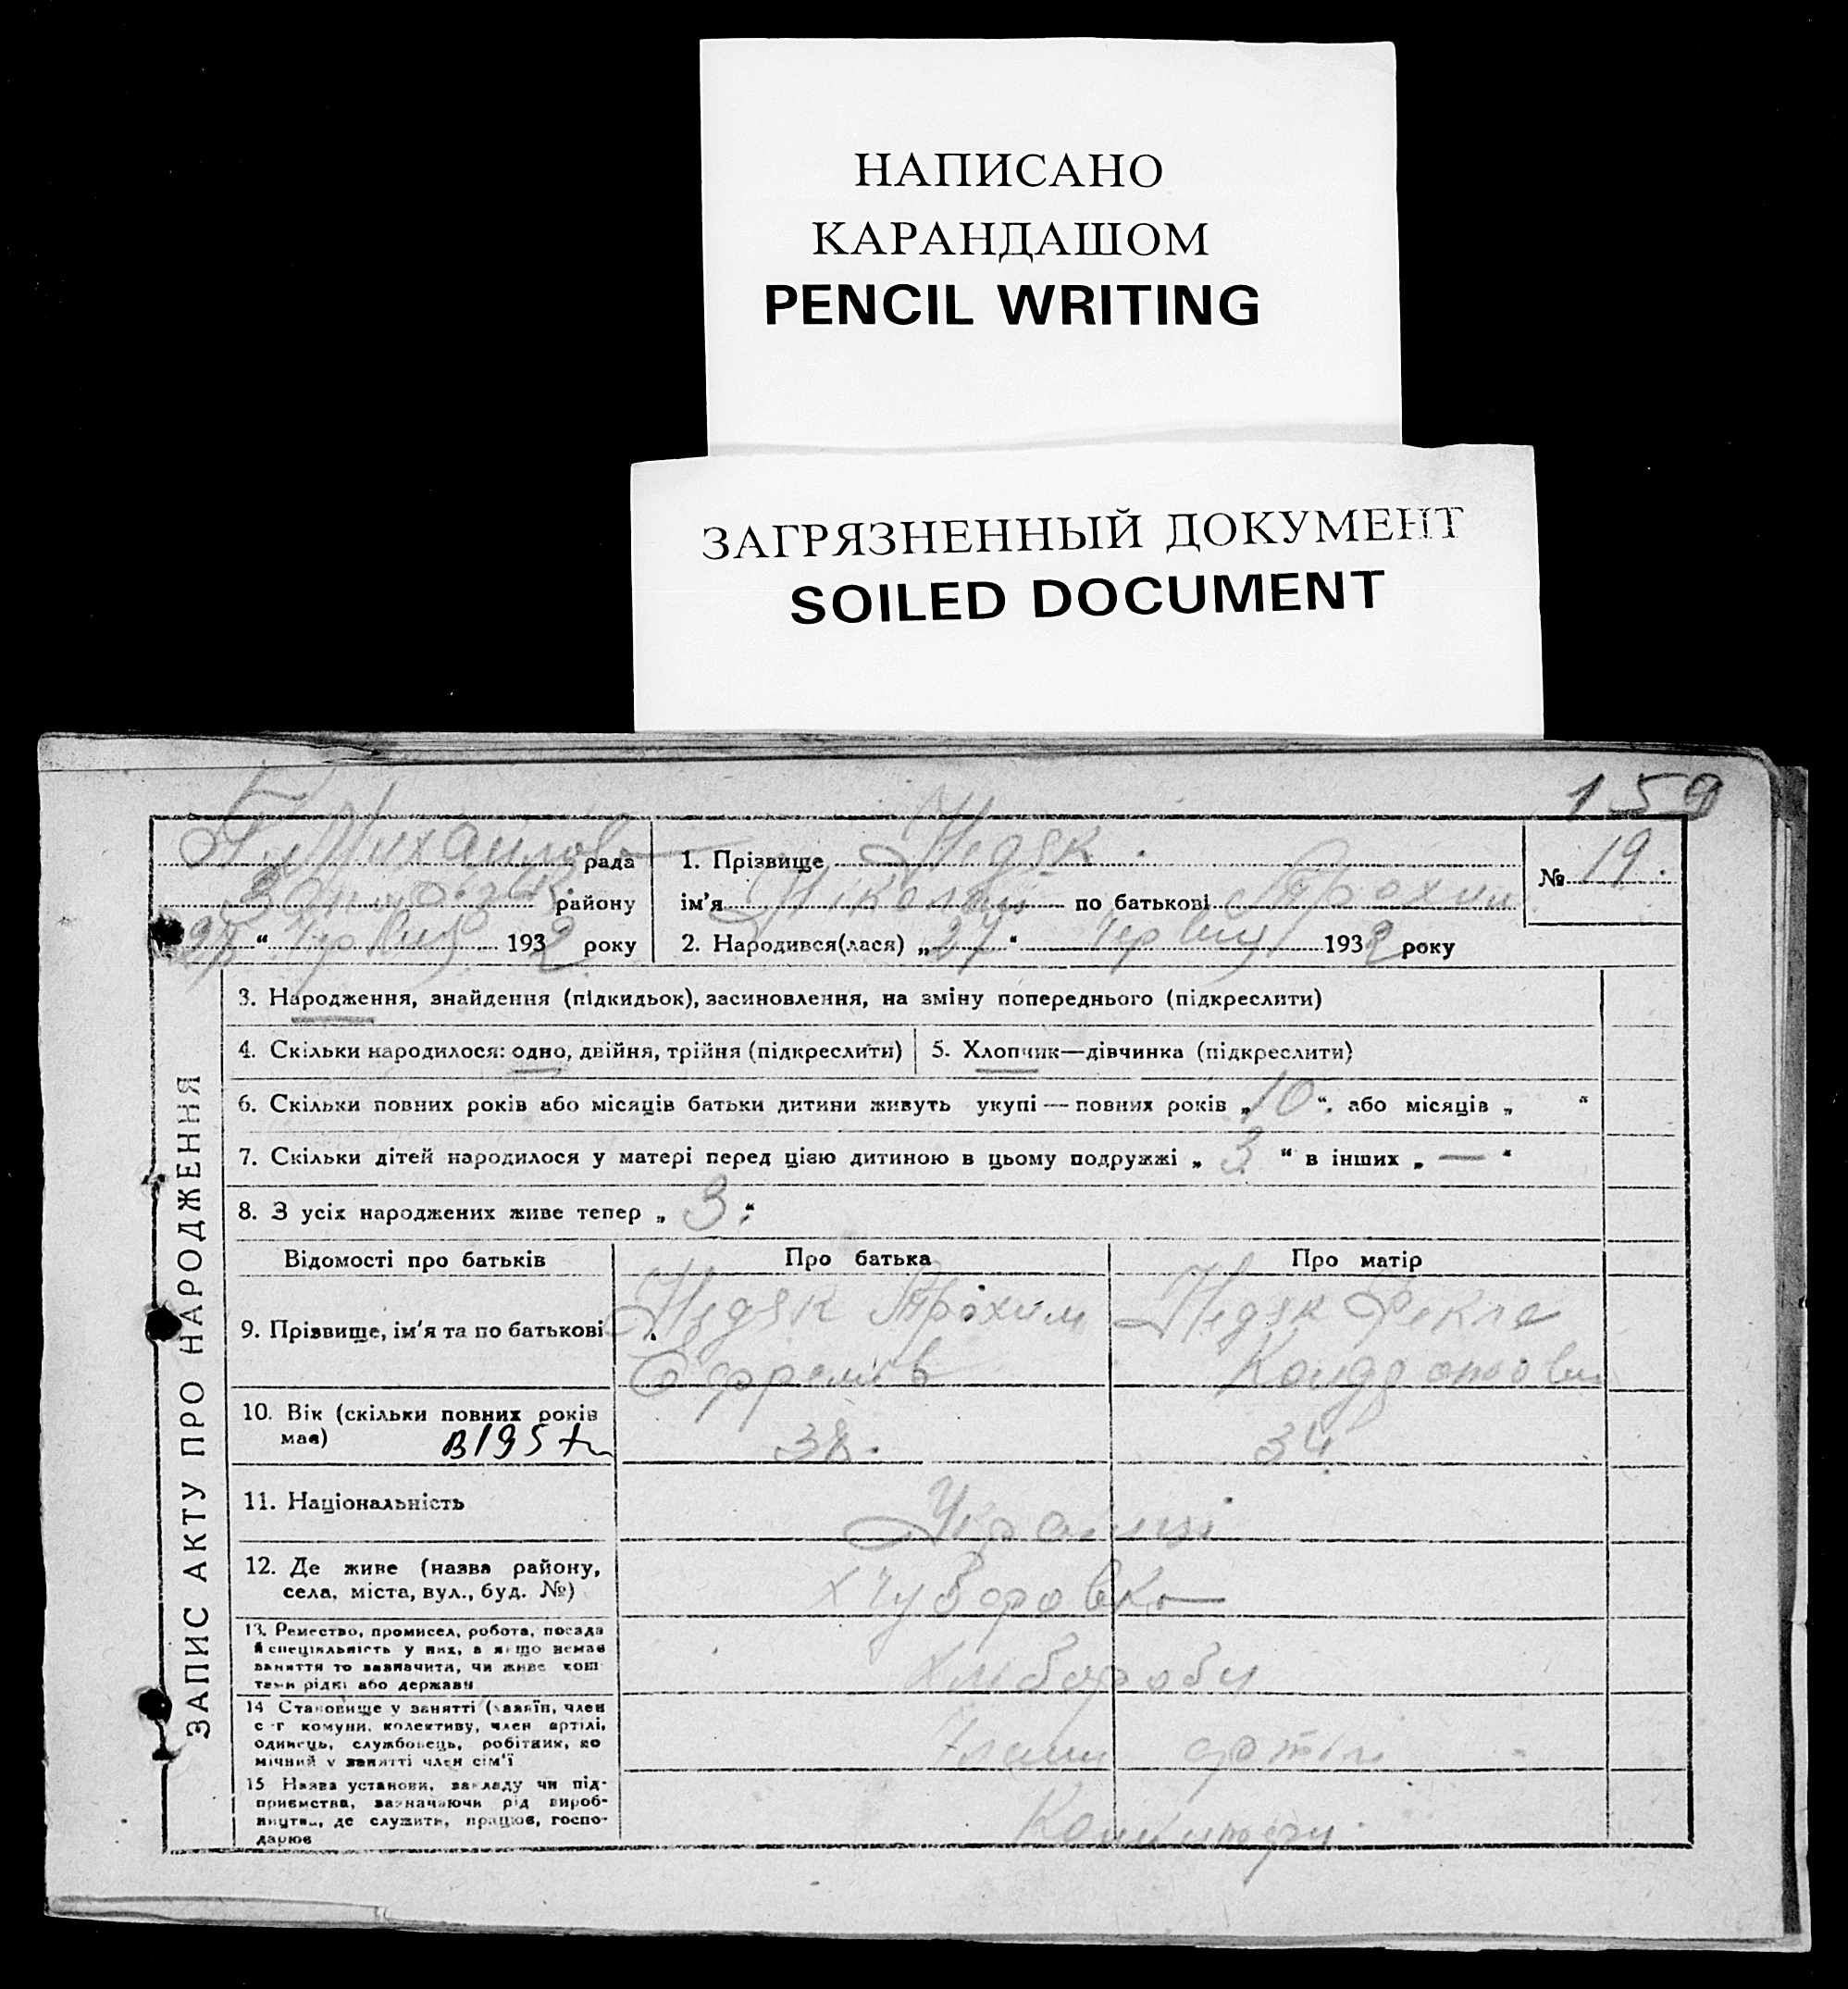 НАПИСАНО
КАРАНДАШОМ
PENCIL WRITING
ЗАГРЯЗНЕННЫЙ ДОКУМЕНТ
SOILED DOCUMENT
159
рада
району
" 1932 року
1. Прізвище Недяк
ім'я по батькові Трохим
№ 19.
2. Народився(лася) „27" 1932 року
ЗАПИС АКТУ ПРО НАРОДЖЕННЯ
3. Народження, знайдення (підкидьок), засиновлення, на зміну попереднього (підкреслити)
4. Скільки народилося: одно, двійня, трійня (підкреслити)
5. Хлопчик—дівчинка (підкреслити)
6. Скільки повних років або місяців батьки дитини живуть укупі — повних років „10". або місяців „ "
7. Скільки дітей народилося у матері перед цією дитиною в цьому подружжі „ 3 " в інших „ — "
8. З усіх народжених живе тепер „ 3 "
Відомості про батьків Про батька Про матір
9. Прізвище, ім'я та по батькові
Недяк Трохим
Недяк Фекла
10. Вік (скільки повних років
має)
38.
34
11. Національність
Українці
12. Де живе (назва району,
села, міста, вул., буд. №)
13. Ремество, промисел, робота, посада
й спеціяльність у них, а якщо немає
заняття то зазначити, чи живе кош
тами рідні або держави
14 Становище у занятті (хазяїн, член
с-г комуни, колективу, член артілі,
одинець, службовець, робітник, по
мічний у занятті член сім'ї
артіли
15 Назва установи, закладу чи під-
приємства, зазначаючи рід вироб-
ництва, де служить, працює, госпо-
дарює